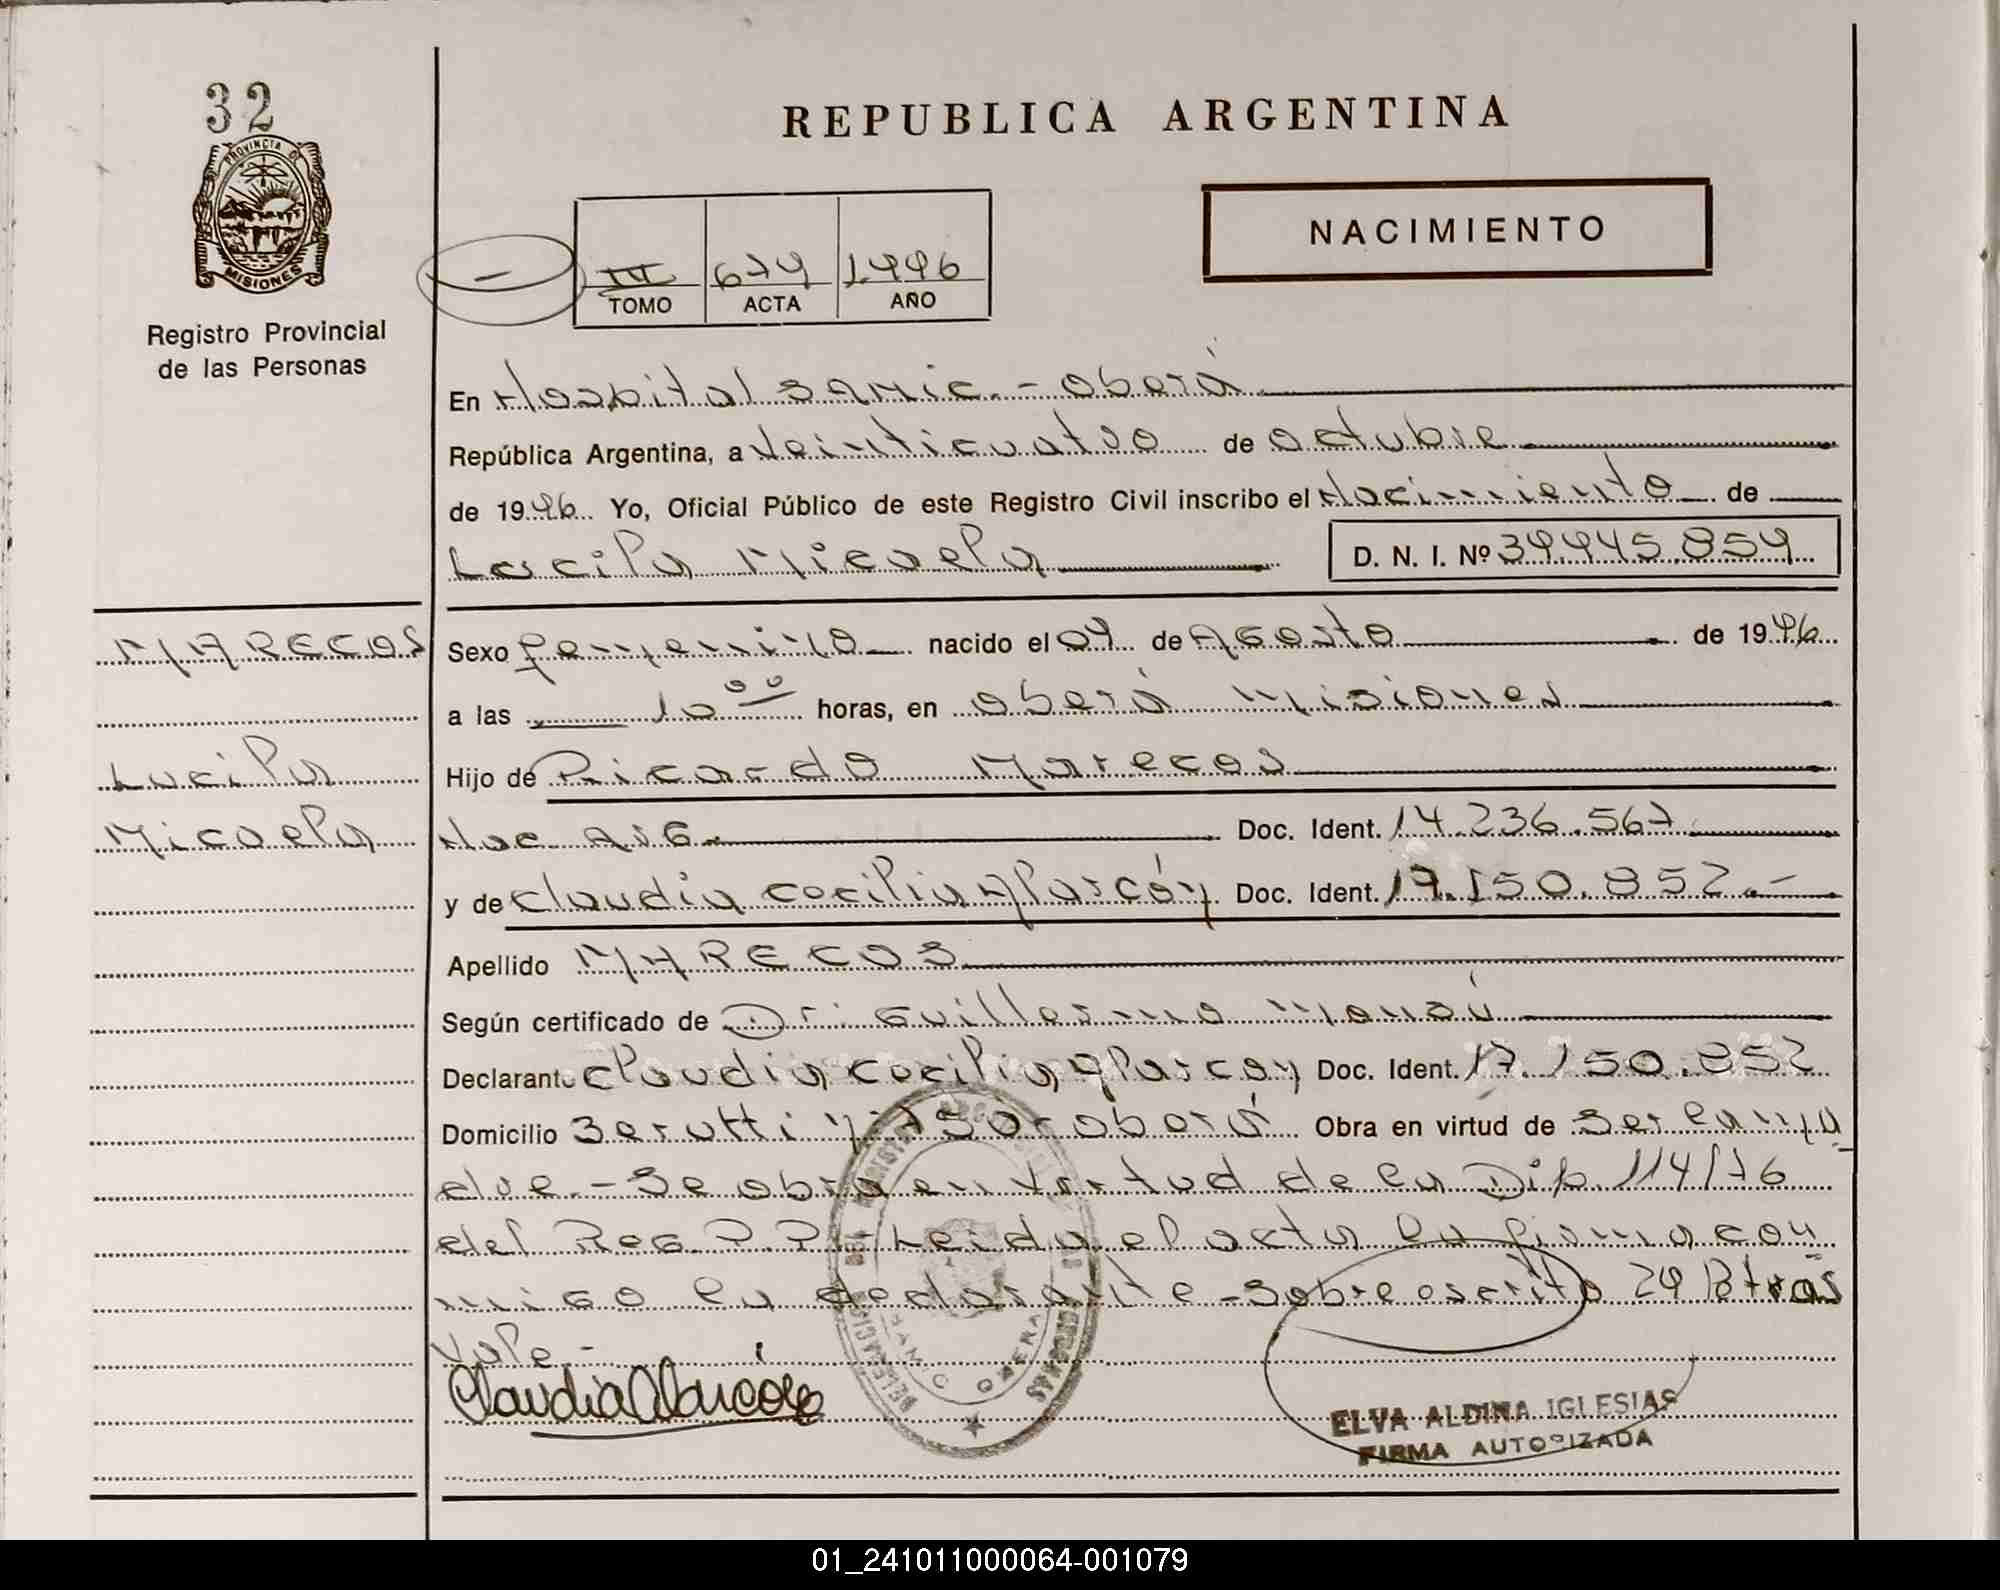 32
PROVINCIA DE
MISIONES
Registro Provincial
de las Personas
REPUBLICA ARGENTINA
NACIMIENTO
III 679 1.996
TOMO ACTA AÑO
En Hospital SAMIC. - Oberá
República Argentina, a Veinticuatro de Octubre
de 1996 Yo, Oficial Público de este Registro Civil inscribo el Nacimiento de
Lucila Micaela D. N. I. Nº 39.945.859
MARECOS
Sexo femenino nacido el 09 de Agosto de 1996
a las 10 00 horas, en Oberá Misiones
Lucila
Hijo de Ricardo Marecos
Micaela
Nac Arg. Doc. Ident. 14.236.567
y de Claudia Cecilia Alarcón Doc. Ident. 17.150.852.-
Apellido MARECOS
Según certificado de Dr: Guillermo
Declarante Claudia Cecilia Alarcon Doc. Ident. 17.150.852
Domicilio Berutti Oberá Obra en virtud de Ser la ma
dre.- Se obra en virtud de la Dip. 114/76
del Reg. P.P.- Leida el acta la firma con
migo la declarante - Sobre escrito 24
Vale.-
Claudia Alarcón
ELVA ALDINA IGLESIAS
FIRMA AUTORIZADA
01_241011000064-001079